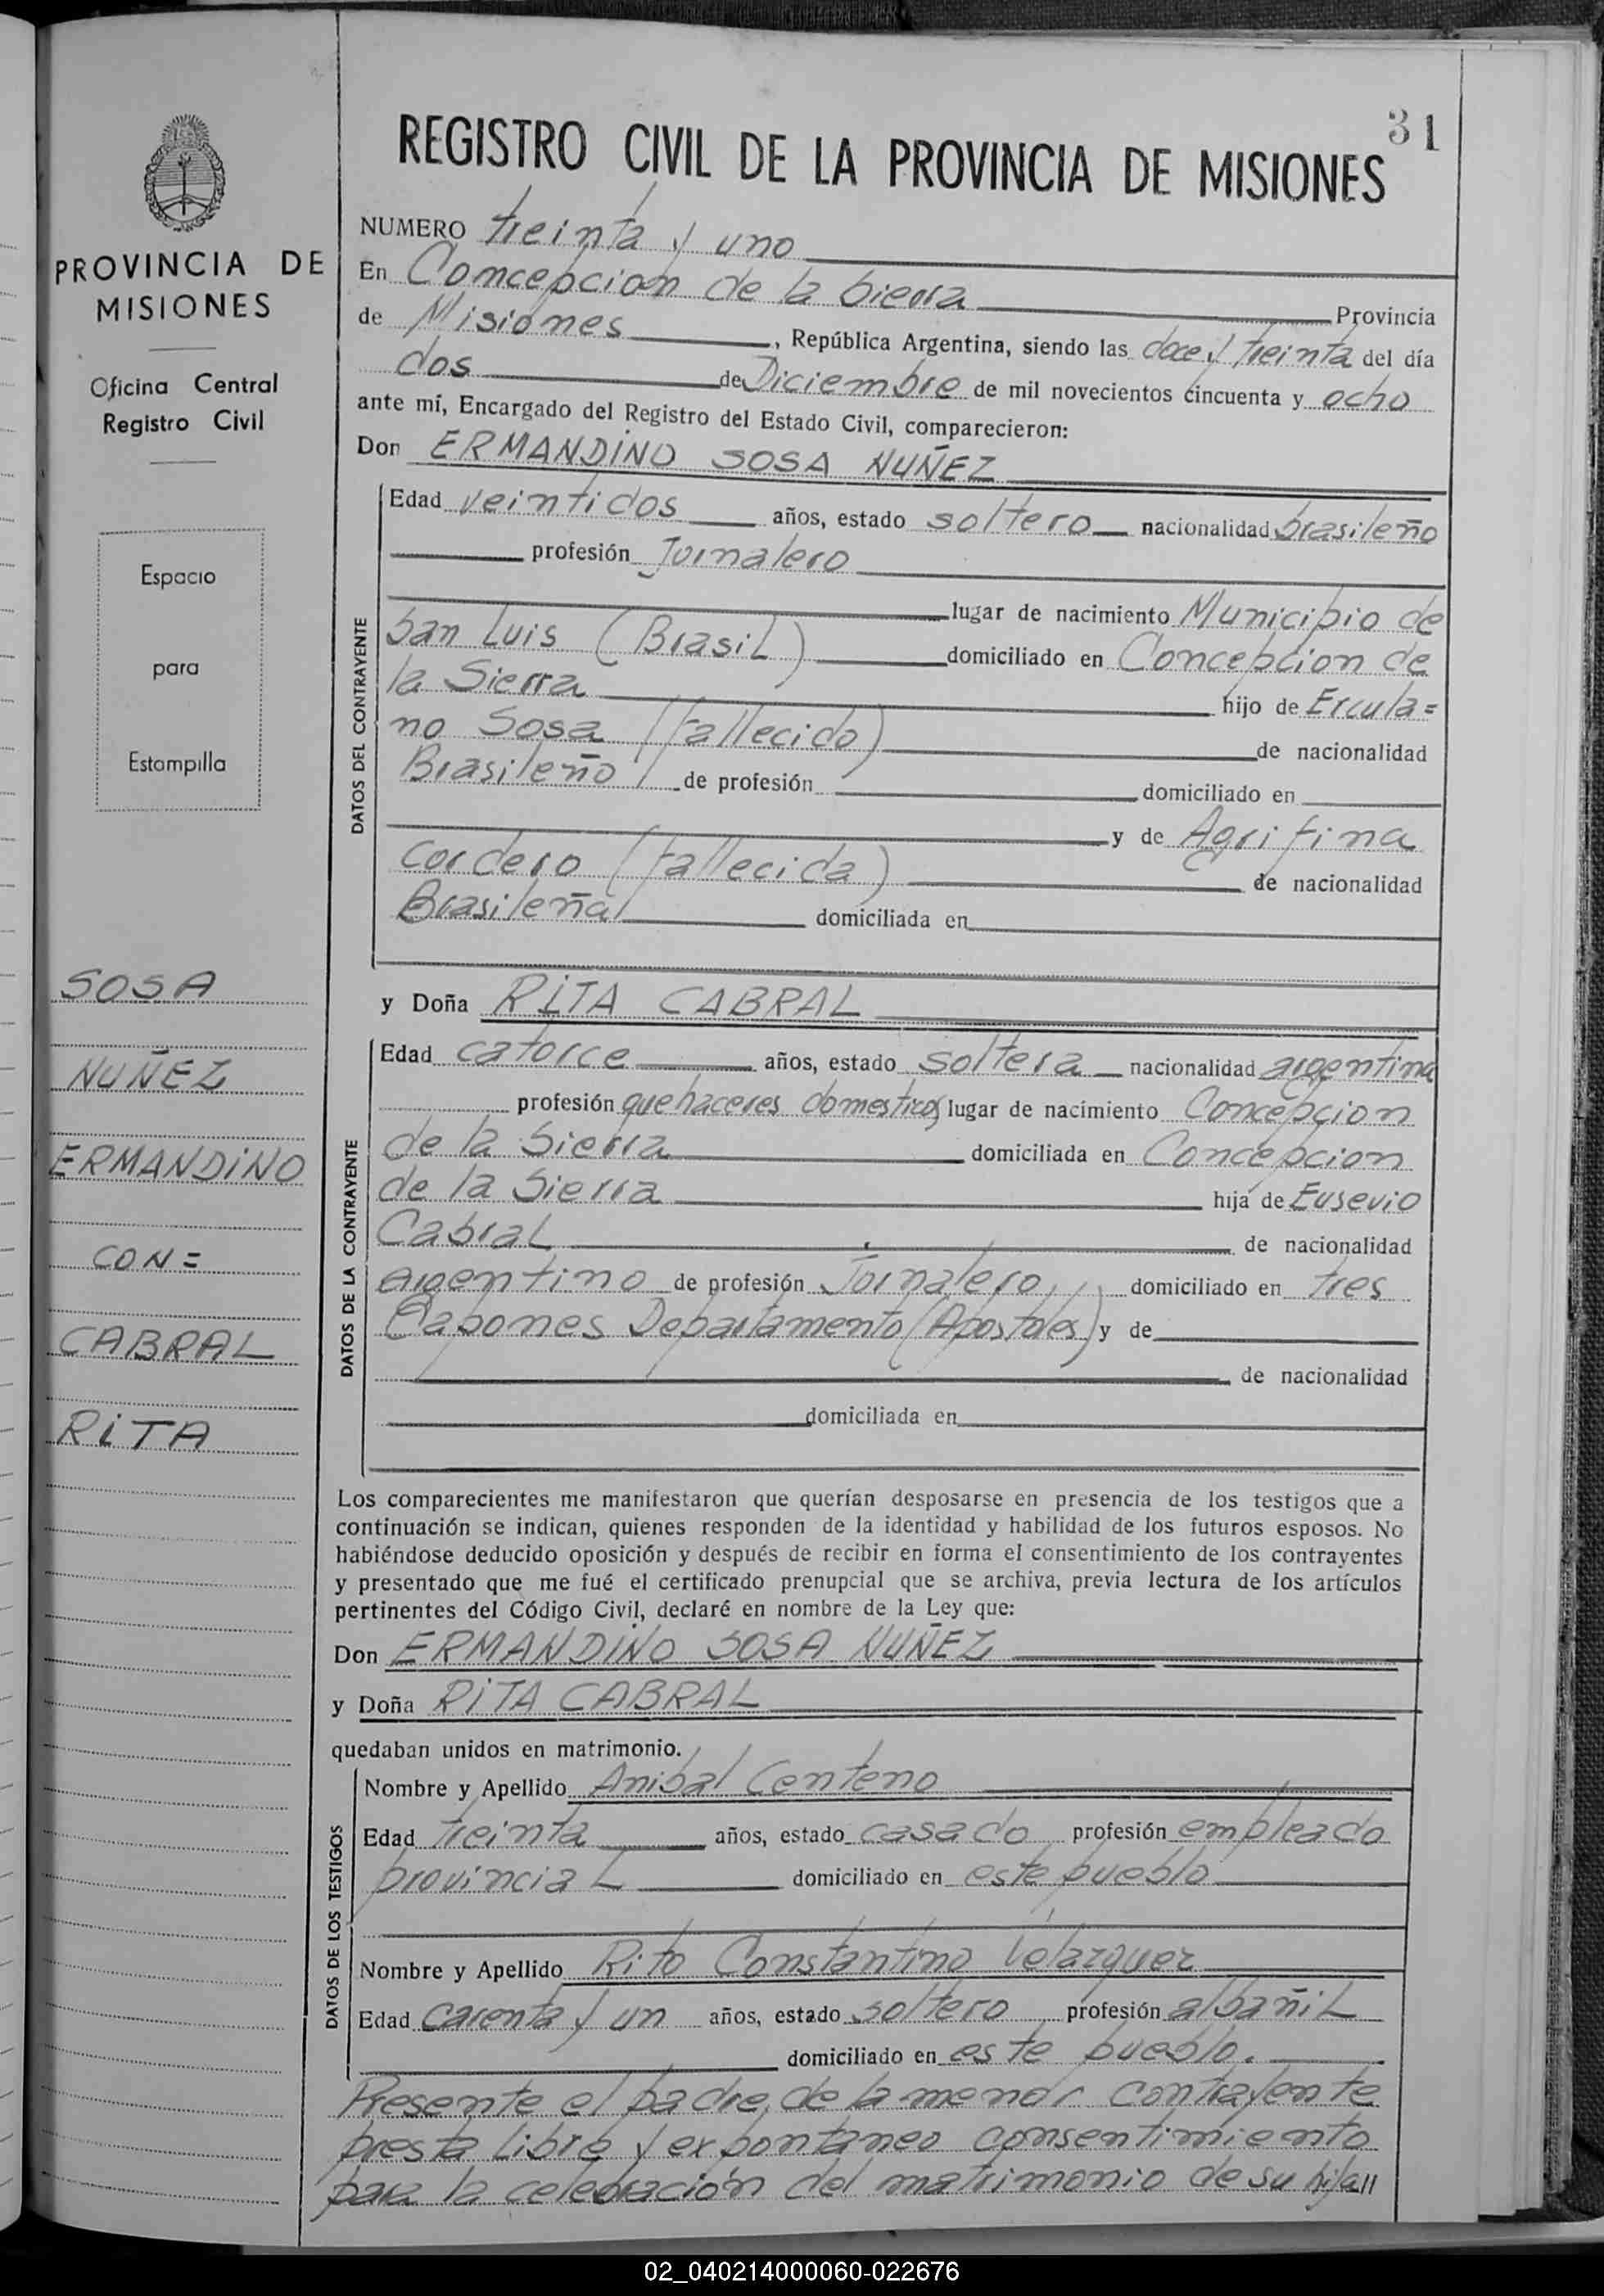 31
REGISTRO CIVIL DE LA PROVINCIA DE MISIONES
PROVINCIA DE
MISIONES
Oficina Central
Registro Civil
Espacio
para
Estampilla
SOSA
NUÑEZ
ERMANDINO
CON =
CABRAL
RITA
NUMERO treinta y uno
En Concepcion de la Sierra Provincia
de Misiones, República Argentina, siendo las doce y treinta del día
dos de Diciembre de mil novecientos cincuenta y ocho
ante mí, Encargado del Registro del Estado Civil, comparecieron:
Don ERMANDINO SOSA NUÑEZ
DATOS DEL CONTRAYENTE
Edad veintidos años, estado soltero nacionalidad brasileño
profesión Jornalero
lugar de nacimiento Municipio de
San Luis (Brasil) domiciliado en Concepcion de
la Sierra hijo de Ercula=
no Sosa (fallecido) de nacionalidad
Brasileño de profesión domiciliado en
y de Agrifina
Cordero (fallecida) de nacionalidad
Brasileña domiciliada en
y Doña RITA CABRAL
DATOS DE LA CONTRAYENTE
Edad catorce años, estado soltera nacionalidad argentina
profesión quehaceres domesticos lugar de nacimiento Concepcion
de la Sierra domiciliada en Concepcion
de la Sierra hija de Eusevio
Cabral de nacionalidad
argentino de profesión Jornalero, domiciliado en tres
Capones Departamento (Apostoles) y de
de nacionalidad
domiciliada en
Los comparecientes me manifestaron que querían desposarse en presencia de los testigos que a
continuación se indican, quienes responden de la identidad y habilidad de los futuros esposos. No
habiéndose deducido oposición y después de recibir en forma el consentimiento de los contrayentes
y presentado que me fué el certificado prenupcial que se archiva, previa lectura de los artículos
pertinentes del Código Civil, declaré en nombre de la Ley que:
Don ERMANDINO SOSA NUÑEZ
y Doña RITA CABRAL
quedaban unidos en matrimonio.
DATOS DE LOS TESTIGOS
Nombre y Apellido Anibal Centeno
Edad treinta años, estado casado profesión empleado
provincial domiciliado en este pueblo
Nombre y Apellido Rito Constantino Velazquez
Edad carenta y un años, estado soltero profesión albañil
domiciliado en este pueblo.
Presente el padre, de la menor contrayente
presta libre y expontaneo consentimiento
para la celebración del matrimonio de su hija
02_040214000060-022676